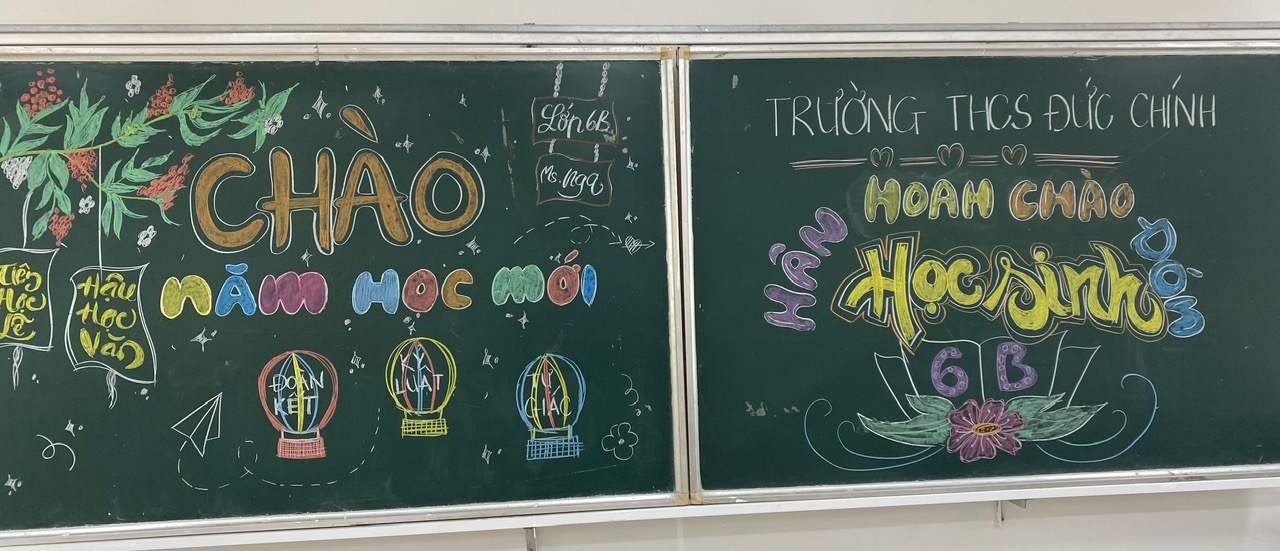 CHÀO
NĂM HỌC MỚI
Lớp 6B
Ms. Nga
Tiên
Học
Lễ
Hậu
Học
Văn
ĐOÀN
KẾT
KỶ
LUẬT
TỰ
GIÁC
TRƯỜNG THCS ĐỨC CHÍNH
HOAN CHÀO
HÂN
ĐÓN
Học sinh
6B